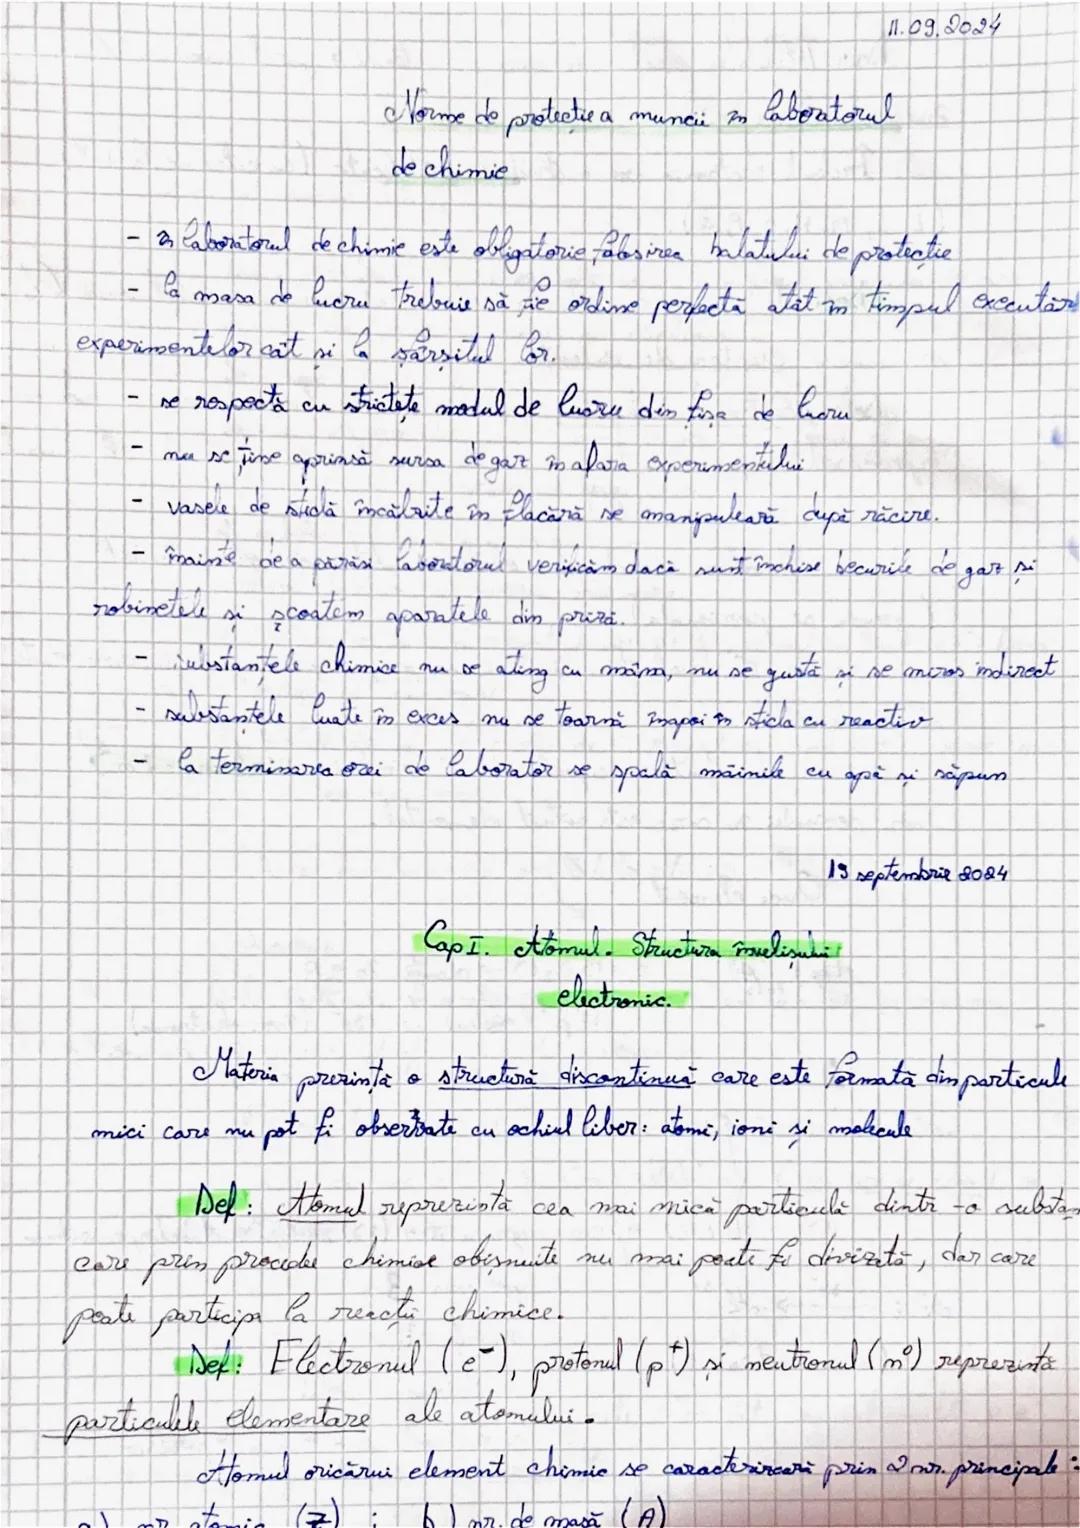 11.09.2024
Norme de protecție a muncii în laboratorul
de chimie
- în laboratorul de chimie este obligatorie folosirea halatului de protecție
- la masa de lucru trebuie să fie ordine perfectă atât în timpul executări
experimentelor cât și la sfârșitul lor.
- se respectă cu strictețe modul de lucru din fișa de lucru
- nu se ține aprinsă sursa de gaz în afara experimentului
- vasele de sticlă încălzite în flacără se manipulează după răcire.
- înainte de a părăsi laboratorul verificăm dacă sunt închise becurile de gaz și
robinetele și scoatem aparatele din priză.
- substanțele chimice nu se ating cu mâna, nu se gustă și se miros indirect
- substanțele luate în exces nu se toarnă înapoi în sticla cu reactiv
- la terminarea orei de laborator se spală mâinile cu apă și săpun
19 septembrie 2024
Cap I. Atomul. Structura învelișului
electronic.
Materia prezintă o structură discontinuă care este formată din particule
mici care nu pot fi observate cu ochiul liber: atomi, ioni și molecule
Def: Atomul reprezintă cea mai mică particulă dintr-o substan
care prin procedee chimice obișnuite nu mai poate fi divizată, dar care
poate participa la reacții chimice.
Def: Electronul (e⁻), protonul (p⁺) și neutronul (n⁰) reprezintă
particulele elementare ale atomului.
Atomul oricărui element chimic se caracterizează prin 2 nr. principale:
a) nr atomic (Z) ; b) nr. de masă (A)